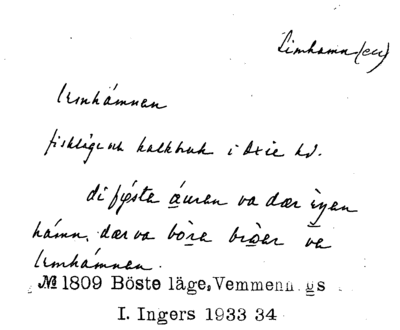 Limhamn(en)
lımhámnen
fiskläge och kalkbruk i Oxie hd.
di fȳ́sta áuren va dær ìŋen
hámn. dær va bòra bròer ve
lımhámnen.
№ 1809 Böste läge, Vemmen gs
I. Ingers 1933 34